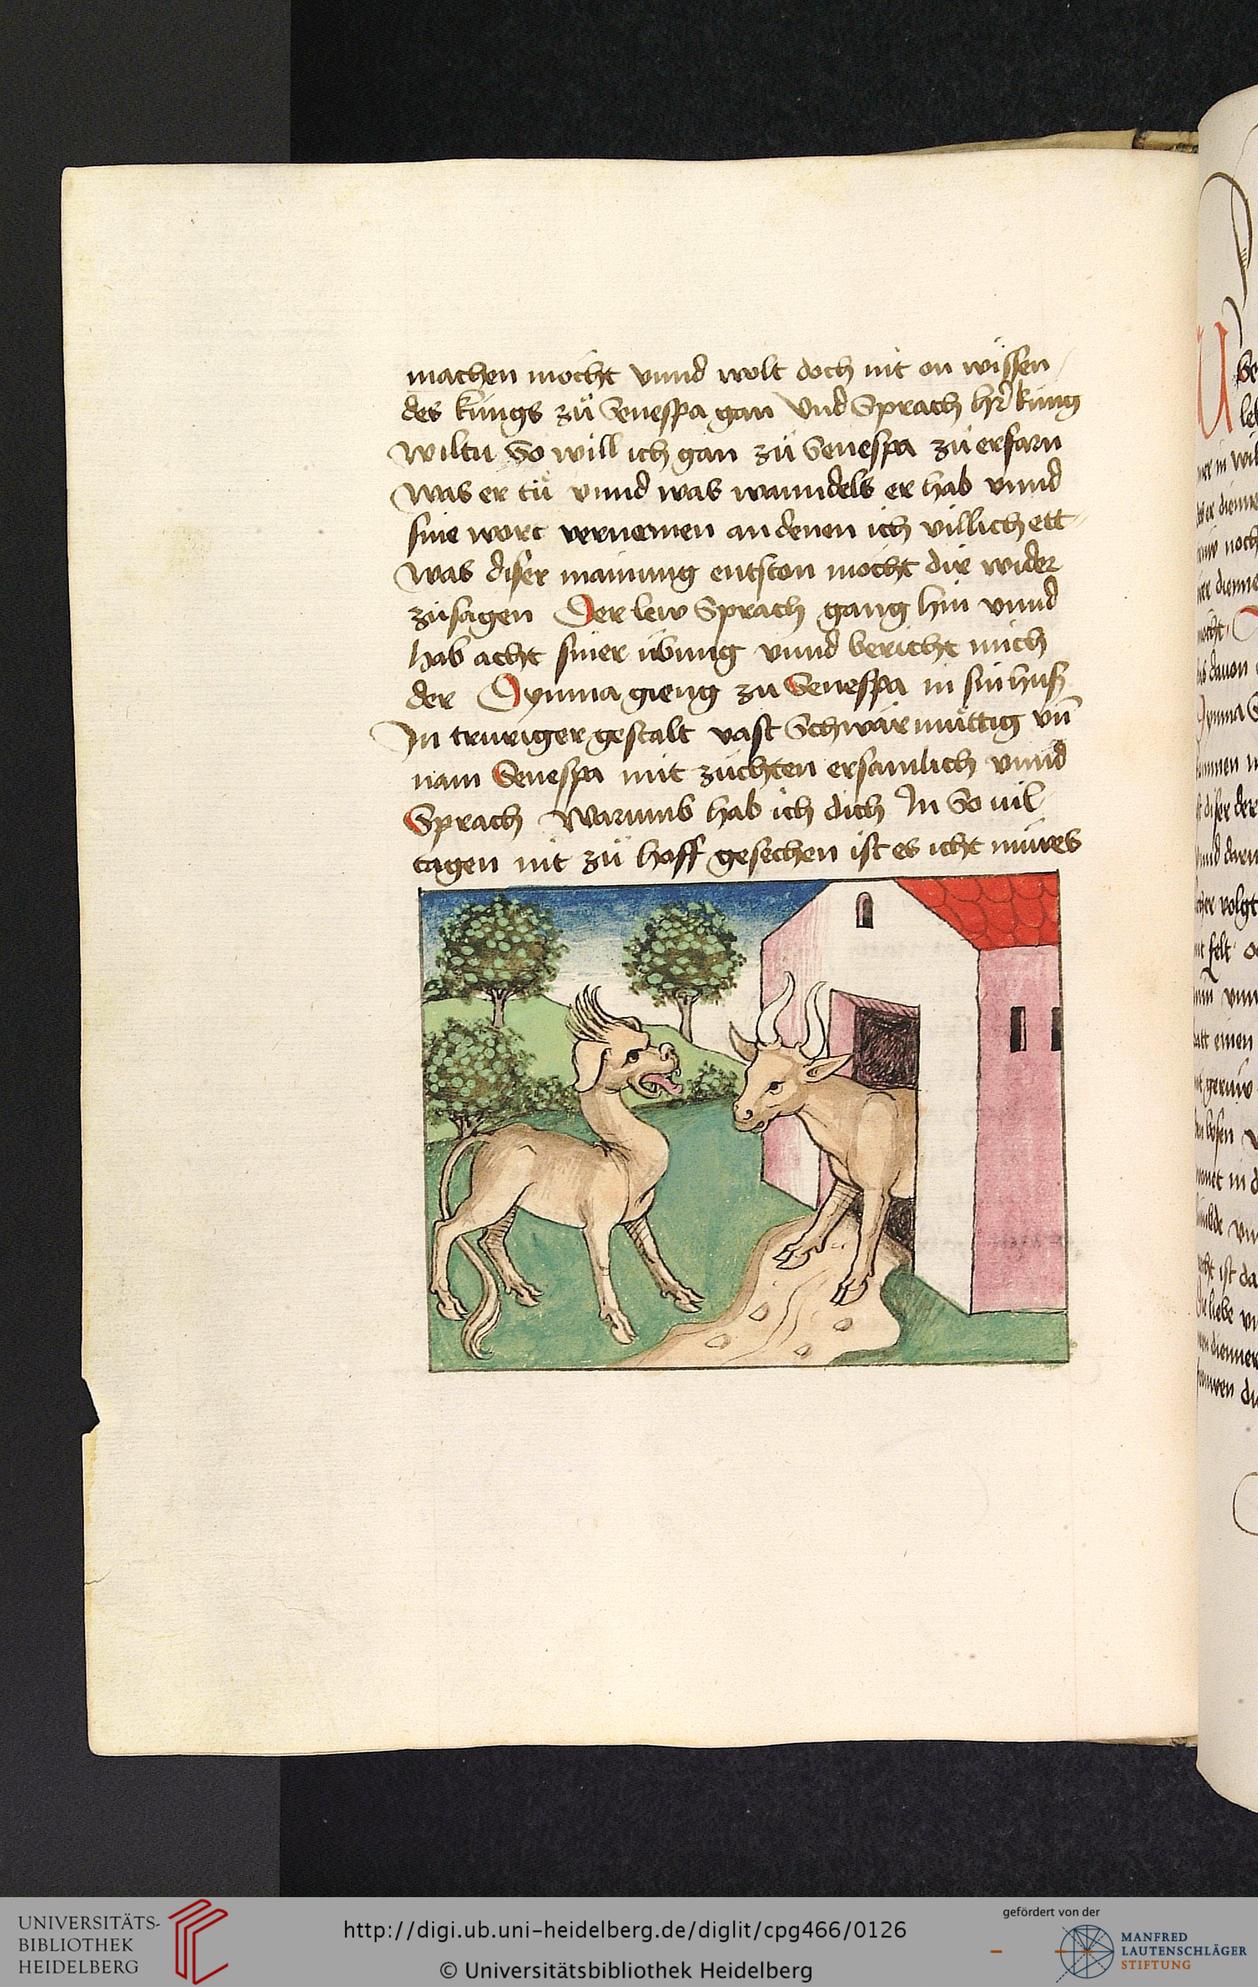 machen mocht vnnd wolt doch nit on wissen
des kungs zů Senespa gan Vnd Sprach hr̄ kung
wiltu So will ich gan zů Senespa zů erfarn
Was er tů vnnd was wanndels er hab vnnd
sine wort vernemen an denen ich villich ett
was diser mainung entston mocht dir wider
zůsagen Der lew Sprach gang hin vnnd
hab acht siner übung vnnd bericht mich
der Dymna gieng zu Senespa in sin huß
In truriger gestalt vast Schwärmüttig vn̄
nam Senespa mit züchten ersamlich vnnd
Sprach Warumb hab ich dich In So vil
tagen nit zů hoff gesechen ist es icht nüwes
UNIVERSITÄTS-
BIBLIOTHEK
HEIDELBERG
http://digi.ub.uni-heidelberg.de/diglit/cpg466/0126
© Universitätsbibliothek Heidelberg
gefördert von der
MANFRED
LAUTENSCHLÄGER
STIFTUNG